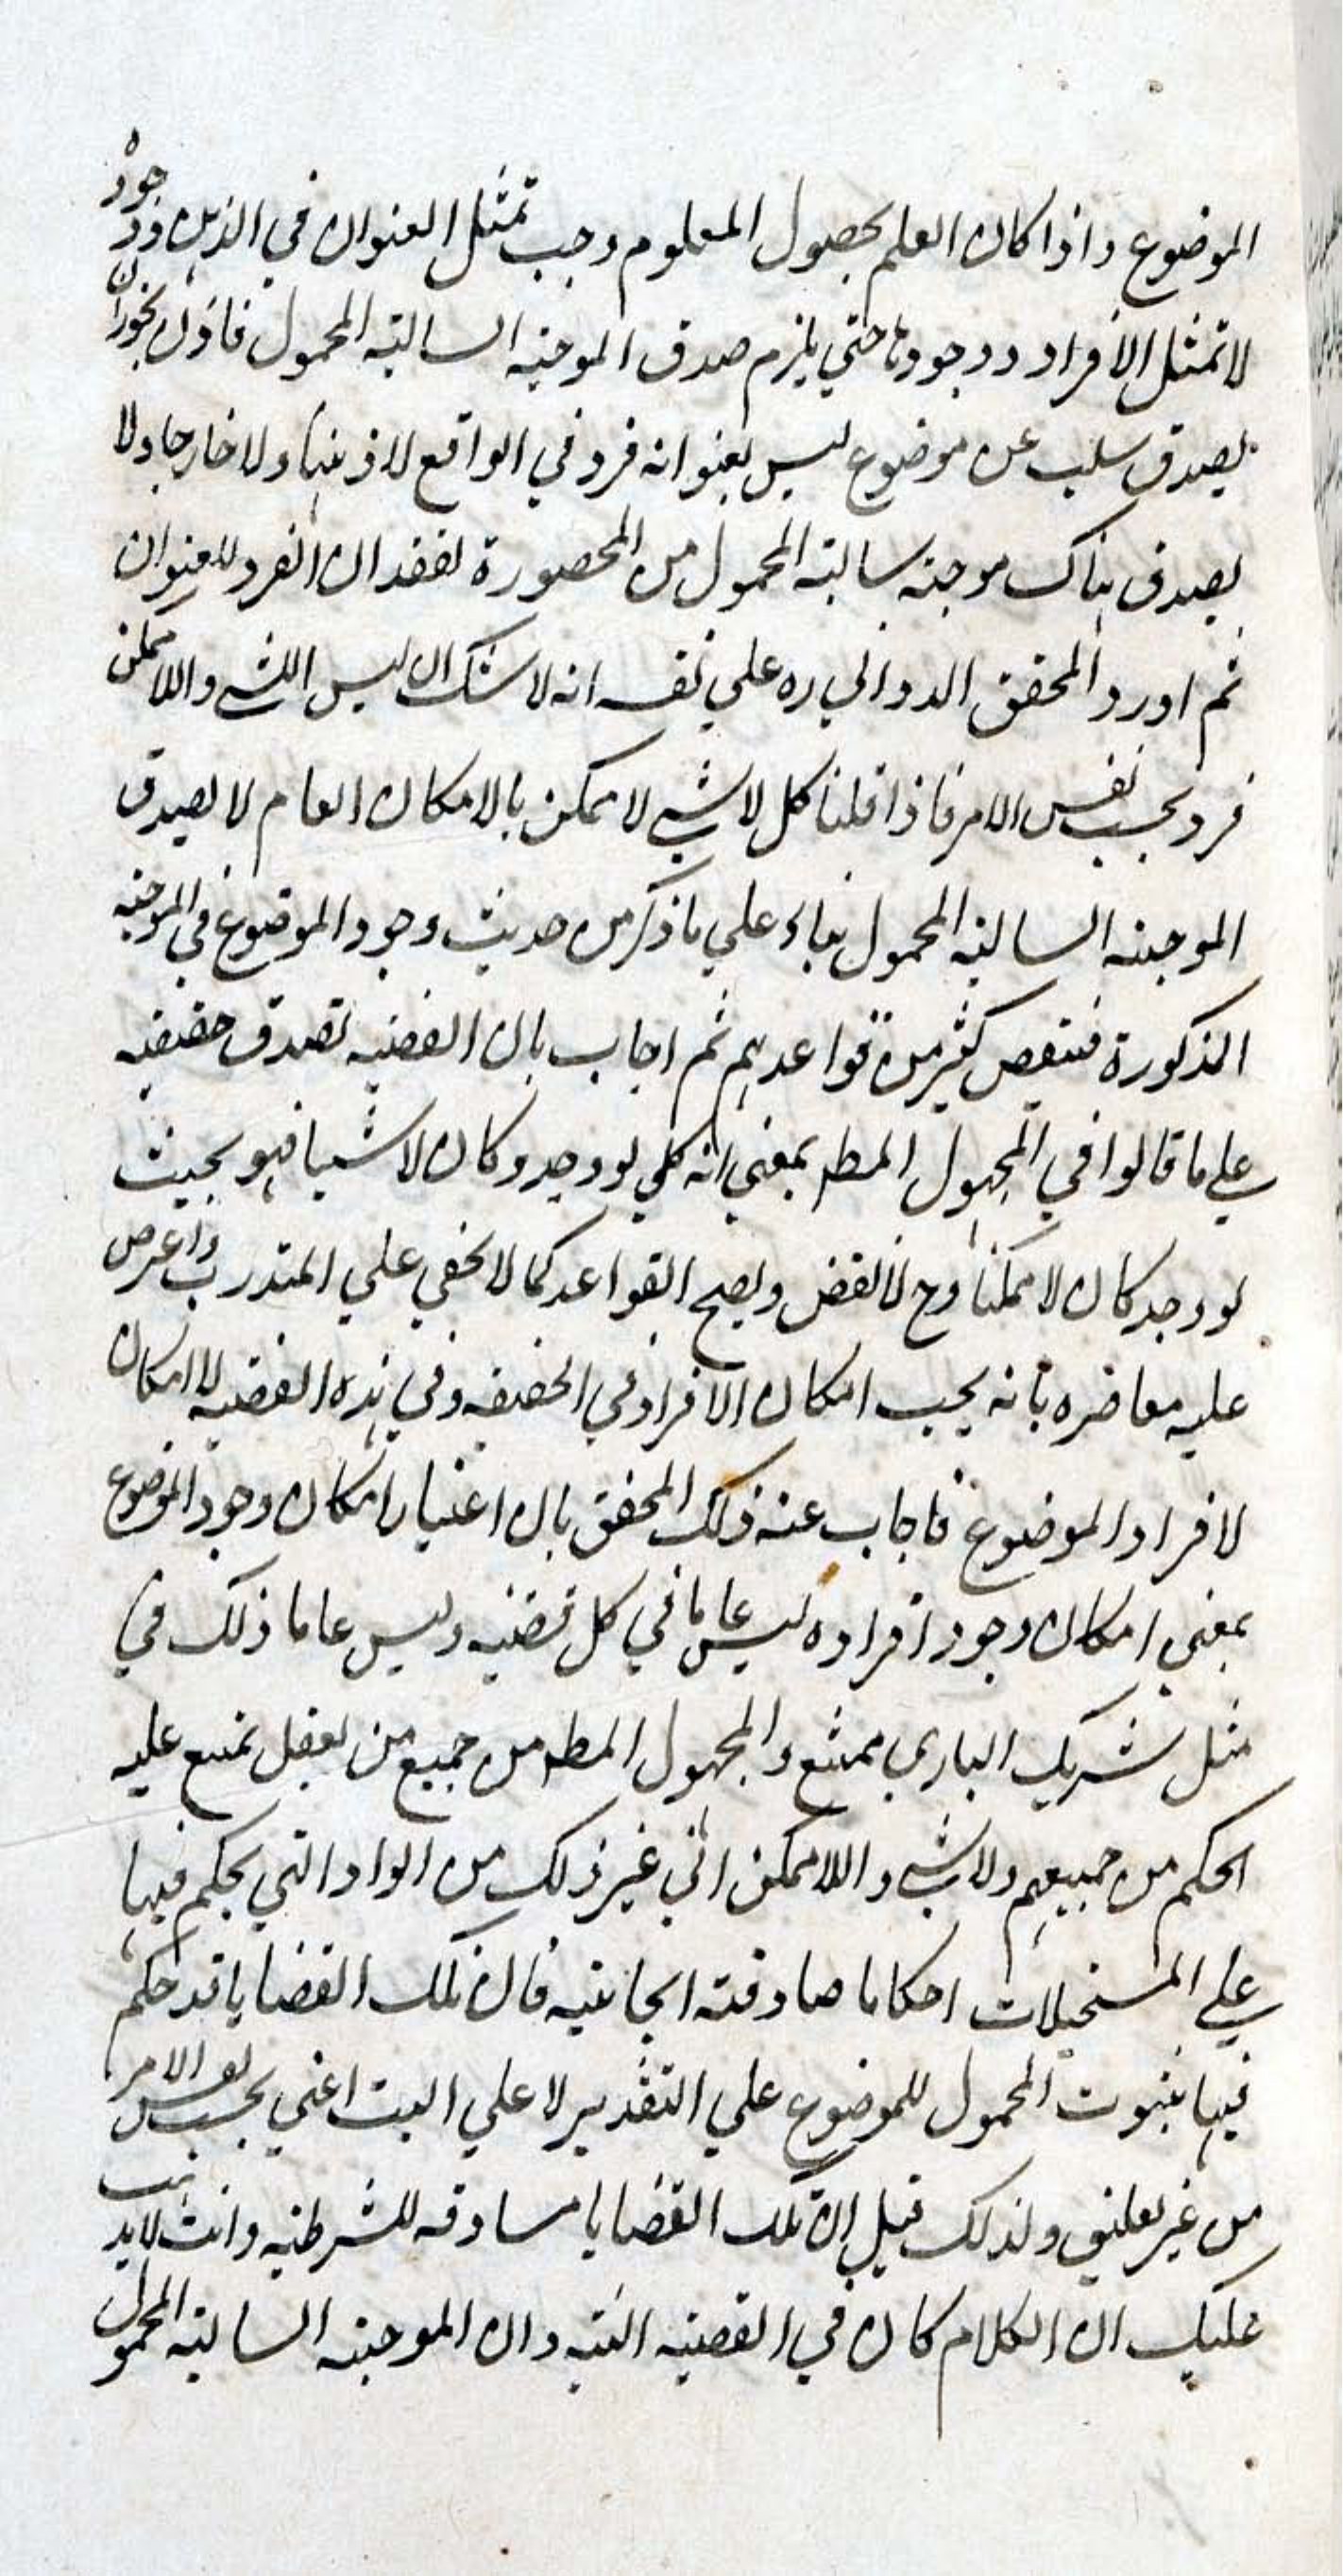 الموضوع واذا كان العلم بحصول المعلوم وجب تمثل العنوان في الذهن ووجوده
لا تمثل الافراد ووجودها حتي يلزم صدق الموجبه السالبته المحمول فاذن يجوز ان
يصدق سلب عن موضوع ليس بعنوانه فرد في الواقع لا ذهنا ولا خارجا ولا
يصدق هناك موجبته سالبته المحمول من المحصورة لفقدان الفرد للعنوان
ثم اورد المحقق الدواني ره علي نفسه انه لا شك ان ليس اللاشي واللاممكن
فرد بحسب نفس الامر فاذا قلنا كل لا شي لا ممكن بالامكان العام لا يصدق
الموجبته السالبته المحمول بناء علي ما ذكر من حديث وجود الموضوع في الموجبه
المذكورة فينتقض كثير من قواعدهم ثم اجاب بان القضيه تصدق حقيقيه
علي ما قالوا في المجهول المطه بمعني انه كلي لو وجد وكان لا شيئا فهو بحيث
لو وجد كان لا ممكنا وح لا نقض ويصح القواعد كما لا يخفي علي المتدرب واعرض
عليه معاصره بانه يجب امكان الافراد في الحقيقه وفي هذه القضيه لا امكان
لافراد الموضوع فاجاب عنه ذلك المحقق بان اعتبار امكان وجود الموضوع
بمعني امكان وجود افراده ليس عاما في كل قضيه وليس عاما ذلك في
مثل شريك الباري ممتنع والمجهول المطه من جميع من يعقل يمتنع عليه
الحكم من جميعهم ولا شي واللاممكن الي غير ذلك من المواد التي يحكم فيها
علي المستحيلات احكاما صادقته ايجابيه فان تلك القضايا قد حكم
فيها بثبوت المحمول للموضوع علي التقدير لا علي البت اعني بحسب نفس الامر
من غير تعليق ولذلك قيل ان تلك القضايا مساوقه للشرطيه وانت لا يذهب
عليك ان الكلام كان في القضيه البتيه وان الموجبته السالبته المحمول